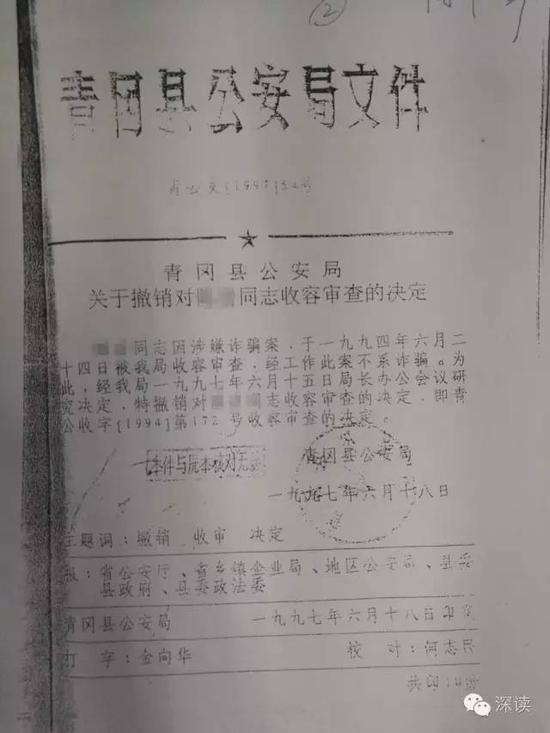 ②
青冈县公安局文件
青公文[1997]52号
青冈县公安局
关于撤销对 同志收容审查的决定
同志因涉嫌诈骗案，于一九九四年六月二
十四日被我局收容审查，经工作此案不系诈骗。为
此，经我局一九九七年六月十五日局长办公会议研
究决定，特撤销对 同志收容审查的决定，即青
公收字[1994]第172号收容审查的决定。
本件与原本核对无异
青冈县公安局
一九九七年六月十八日
主题词：撤销 收审 决定
报：省公安厅、省乡镇企业局、地区公安局、县委
县政府、县委政法委
青冈县公安局 一九九七年六月十八日印发
打字：金向华 校对：何志民
共印
深读